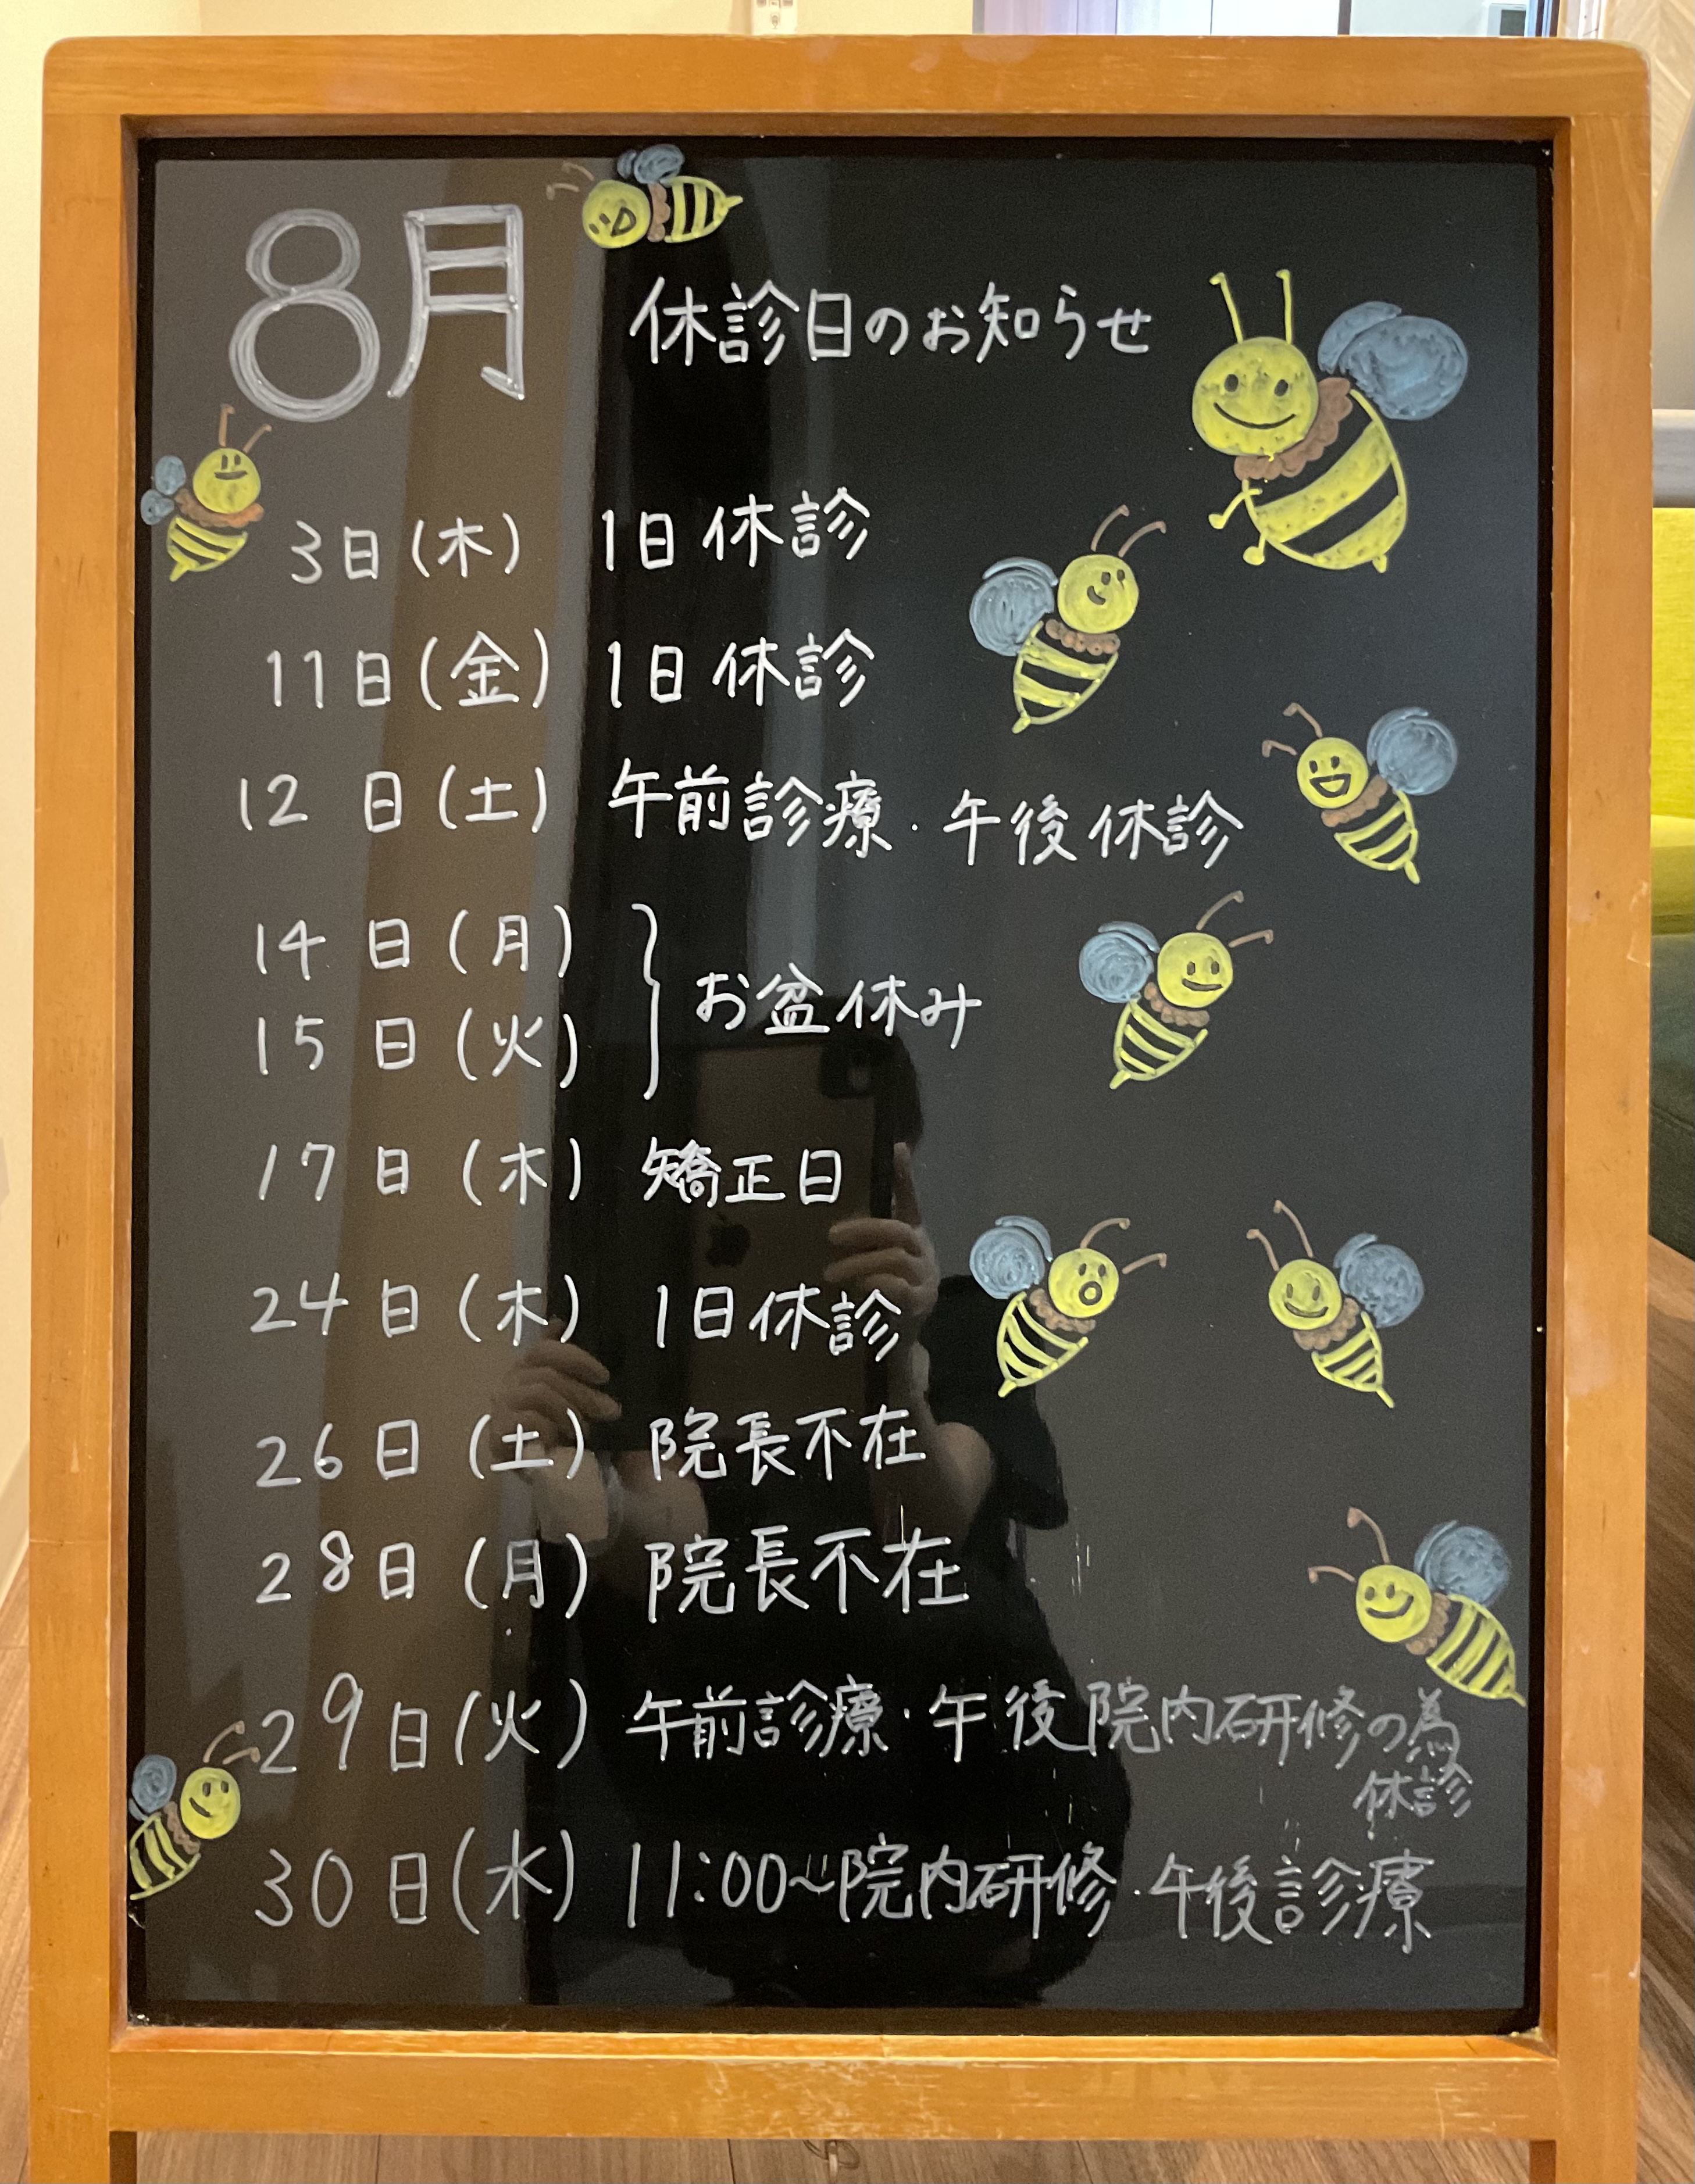 8月 休診日のお知らせ
3日(木) 1日休診
11日(金) 1日休診
12日(土) 午前診療・午後休診
14日(月)
15日(火) } お盆休み
17日(木) 矯正日
24日(木) 1日休診
26日(土) 院長不在
28日(月) 院長不在
29日(火) 午前診療・午後院内研修の為
休診
30日(水) 11:00~院内研修・午後診療